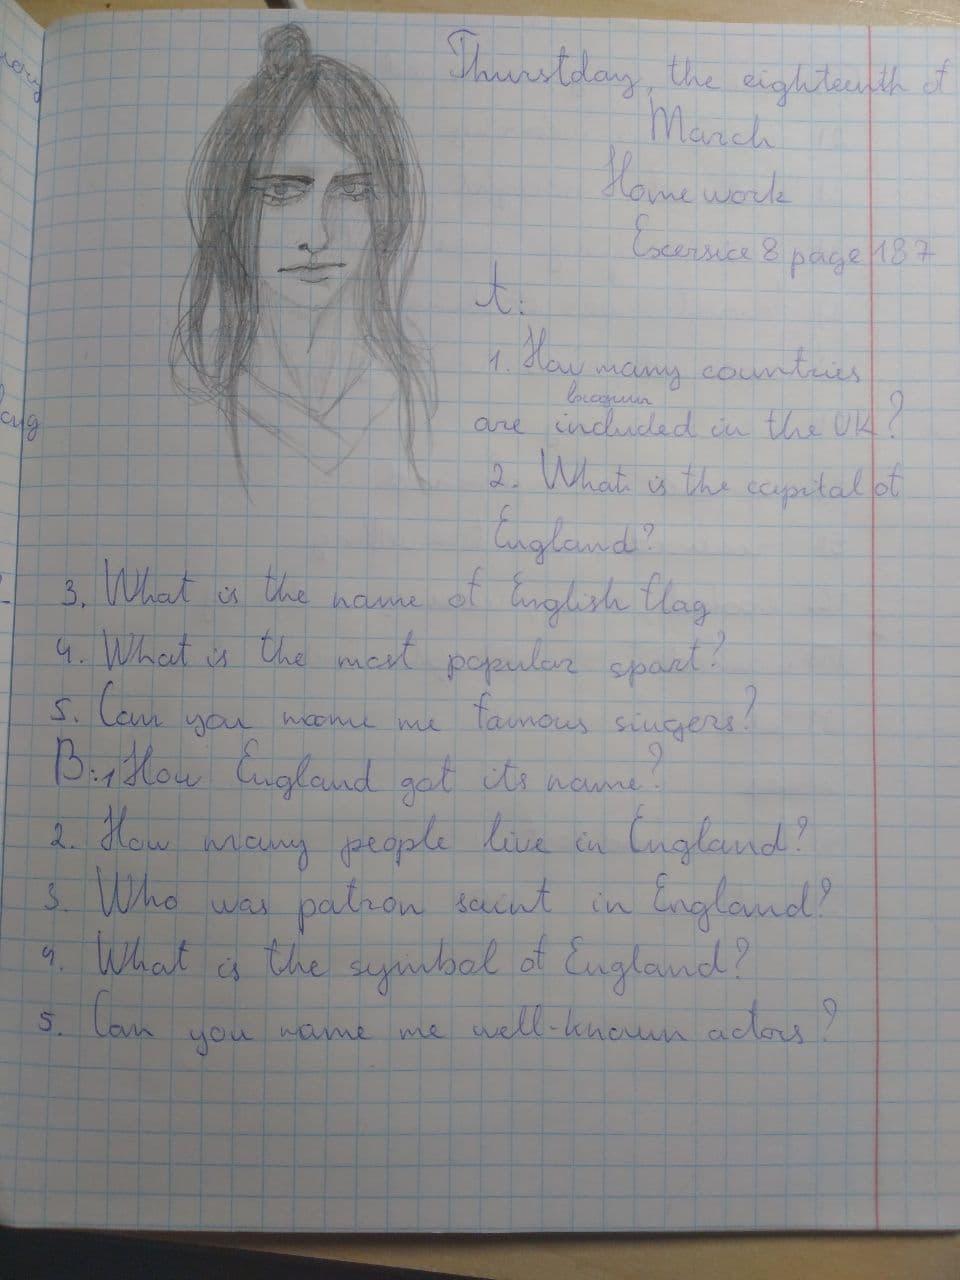 Thurstday, the eighteenth of
March
Home work
Excersice 8 page 187
A:
1. How many countries
are included in the UK?
2. What is the capital of
England?
3. What is the name of English flag
4. What is the most popular sport?
5. Can you name me famous singers?
B:1 How England got its name?
2. How many people live in England?
3. Who was patron saint in England?
4. What is the symbol of England?
5. Can you name me well-known actors?